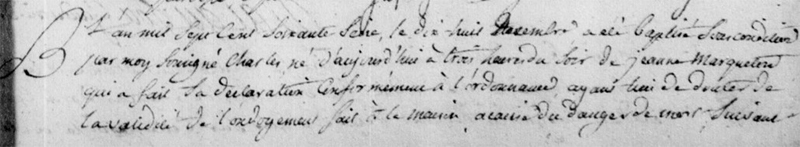 L'an mil sept cent soixante seise, le dix huit decembre a eté baptisé sous condition
par moy soussigné Charles né d'aujourd'hui à trois heures du soir de jeanne Marguerite
qui a fait sa declaration Conformement à l'ordonnance, ayant lieu de douter de
la validité de l'ondoyement fait à la maison acause du danger de mort suivant